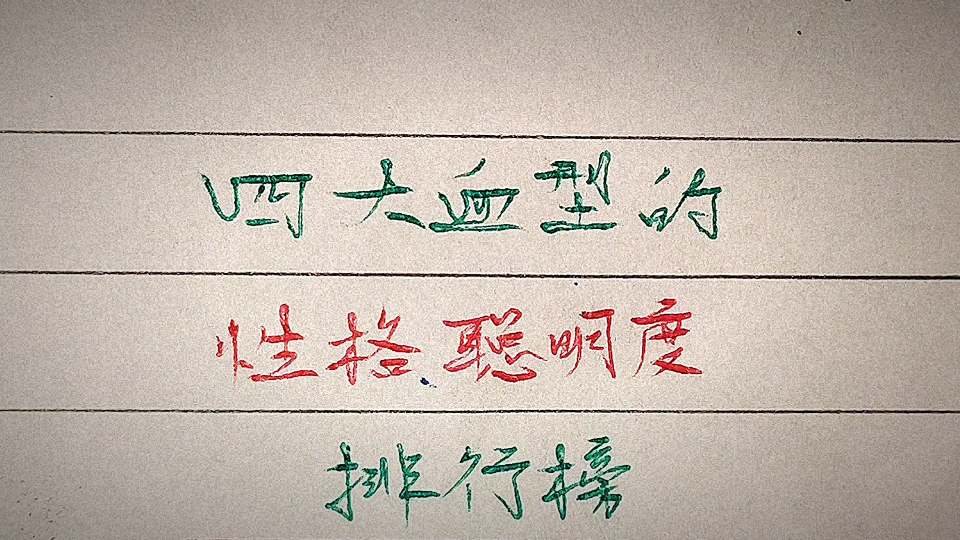 四大血型的
性格聪明度
排行榜